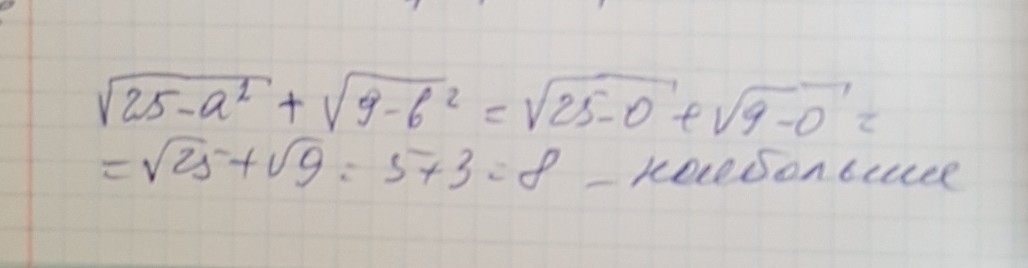 √25-a² + √9-b² = √25-0 + √9-0 =
= √25 + √9 = 5+3 = 8 - наибольшее